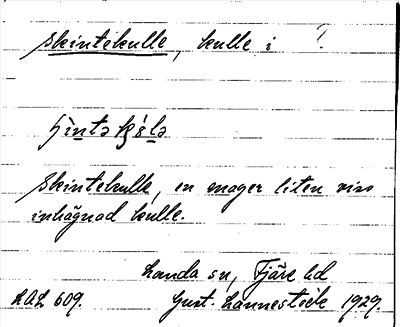 skintekulle, kulle i
skintekulle, en mager liten viss
inhägnad kulle.
Landa sn, Fjäre hd
LAL 609. Gust. Lannestock 1929